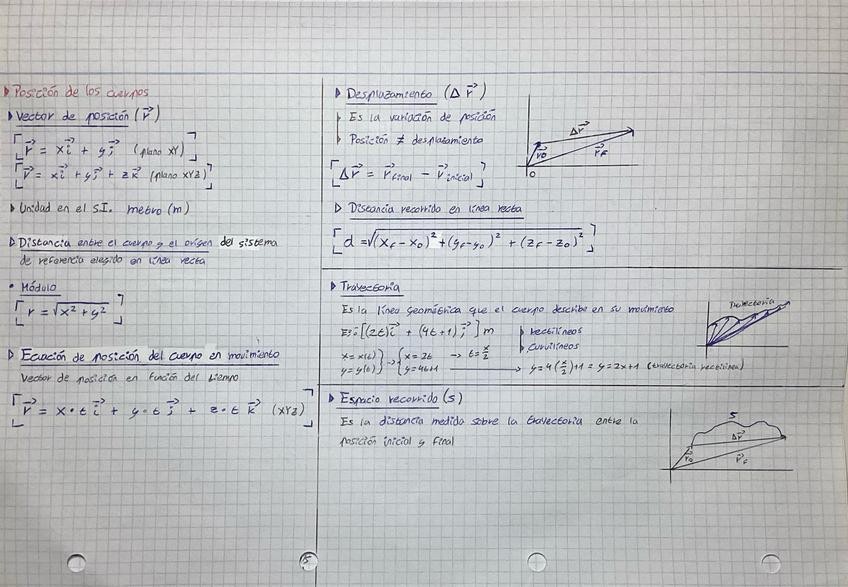 Posición de los cuerpos
Vector de posición (r⃗)
r⃗ = xi⃗ + yj⃗ (plano XY)
r⃗ = xi⃗ + yj⃗ + zk⃗ (plano XYZ)
Unidad en el S.I. metro (m)
Distancia entre el cuerpo y el origen del sistema
de referencia elegido en línea recta
Módulo
r = √x² + y²
Ecuación de posición del cuerpo en movimiento
Vector de posición en función del tiempo
r⃗ = x·t i⃗ + y·t j⃗ + z·t k⃗ (XYZ)
Desplazamiento (Δ r⃗)
Es la variación de posición
Posición ≠ desplazamiento
Δr⃗ = r⃗ final − r⃗ inicial
Δr⃗
r⃗0
r⃗F
0
Distancia recorrido en línea recta
d = √(xF − x0)² + (yF − y0)² + (zF − z0)²
Trayectoria
Es la línea geométrica que el cuerpo describe en su movimiento
Ej: [(2t)i⃗ + (4t+1)j⃗] m
rectilíneos
curvilíneos
x = x(t) } → { x = 2t → t = x/2
y = y(t) } { y = 4t+1 → y = 4(x/2)+1 = y = 2x+1 (trayectoria rectilínea)
Trayectoria
Espacio recorrido (s)
Es la distancia medida sobre la trayectoria entre la
posición inicial y final
S
Δr⃗
r⃗0
r⃗F